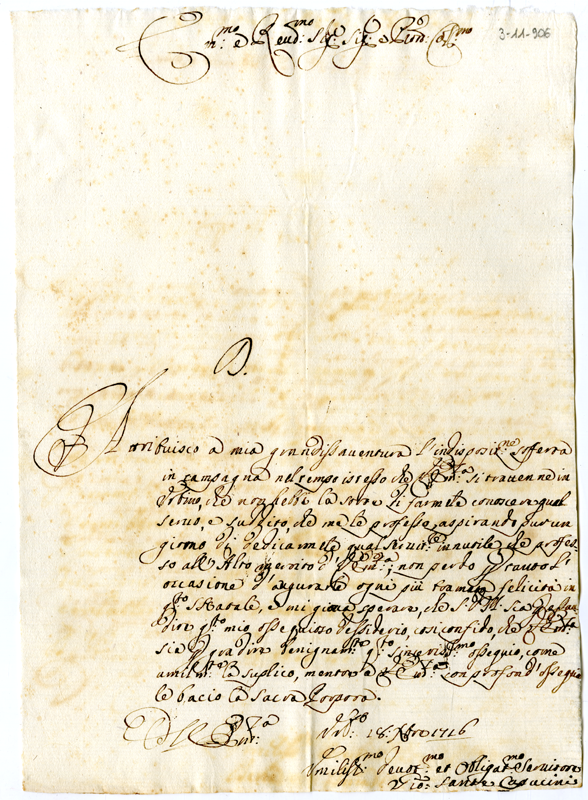 Em.mo e Reud.mo Sig.e Sig.e e Pron. Col.mo
3-11-906
D.
Attribuisco a mia grandiss. auentura l'indisposit.ne sofferta
in campagna nel tempo istesso che V. Em.za si trauenne in
Vrbino, che non hebbi la sorte di farmele conoscere qual
seruo, e suddito, che me le professo, aspirando pur un
giorno di dedicarmele qual seruit.re innutile che profes-
so all'Alto merito d' V. Em.za; non perdo p tanto l'
occasione d'augurarle ogni più bramata felicità in
q.to S. Natale, e mi gioua sperare, che S. D. M. sia p essau-
dire q.to mio ossequioso dessiderio, così confido che V. Em.za
sia p gradire benignam.te q.to sinceriss.mo ossequio, come
umilm.te la suplico, mentre a V. Em.za con profond' ossequio
le bacio la Sacra Porpora.
D. V. Em.za
Vrb.no 18: Xbro 1716
Vmiliss.mo Deuot.mo et Obligat.mo Seruitore
Gio. Sante Capucini